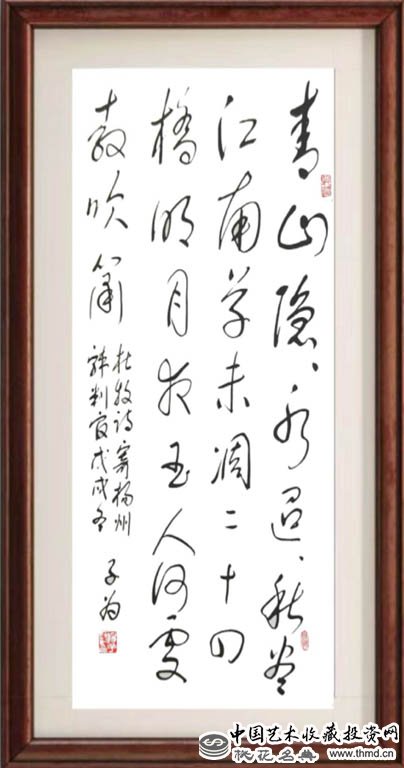 青山隐、水迢、秋尽
江南草未凋二十四
橋明月夜玉人何處
教吹簫
杜牧诗寄揚州
韩判官戊戌冬
子为
中国艺术收藏投资网
桃花名典 www.thmd.cn